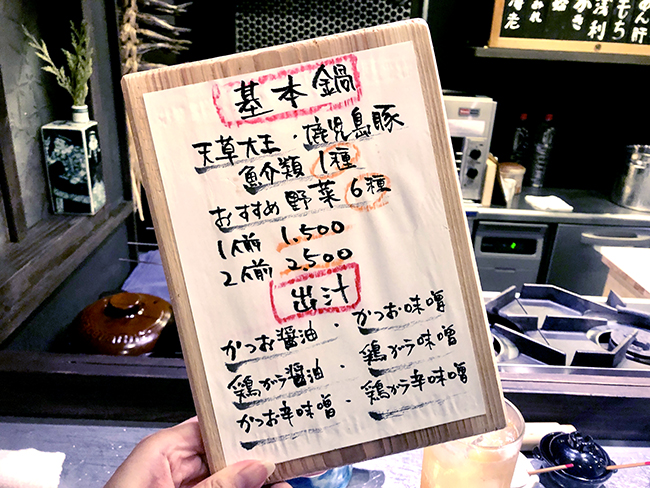 基本鍋
天草大王・鹿児島豚
魚介類 1種
おすすめ 野菜 6種
1人前 1,500
2人前 2,500
出汁
かつお醤油・かつお味噌
鶏がら醤油・鶏がら味噌
かつお辛味噌・鶏がら辛味噌